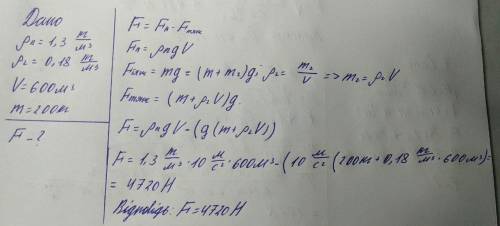 Дано
ρп = 1,3 кг/м³
ρ₂ = 0,18 кг/м³
V = 600м³
m = 200кг
F₁ - ?
F₁ = Fп - Fтяж
Fп = ρпgV
Fтяж = mg = (m + m₂)g; ρ₂ = m₂/V => m₂ = ρ₂V
Fтяж = (m + ρ₂V)g.
F₁ = ρпgV - (g(m + ρ₂V))
F₁ = 1,3 кг/м³ · 10 м/с² · 600м³ - (10 м/с² (200кг + 0,18 кг/м³ · 600м³) =
= 4720 Н
Відповідь: F₁ = 4720 Н